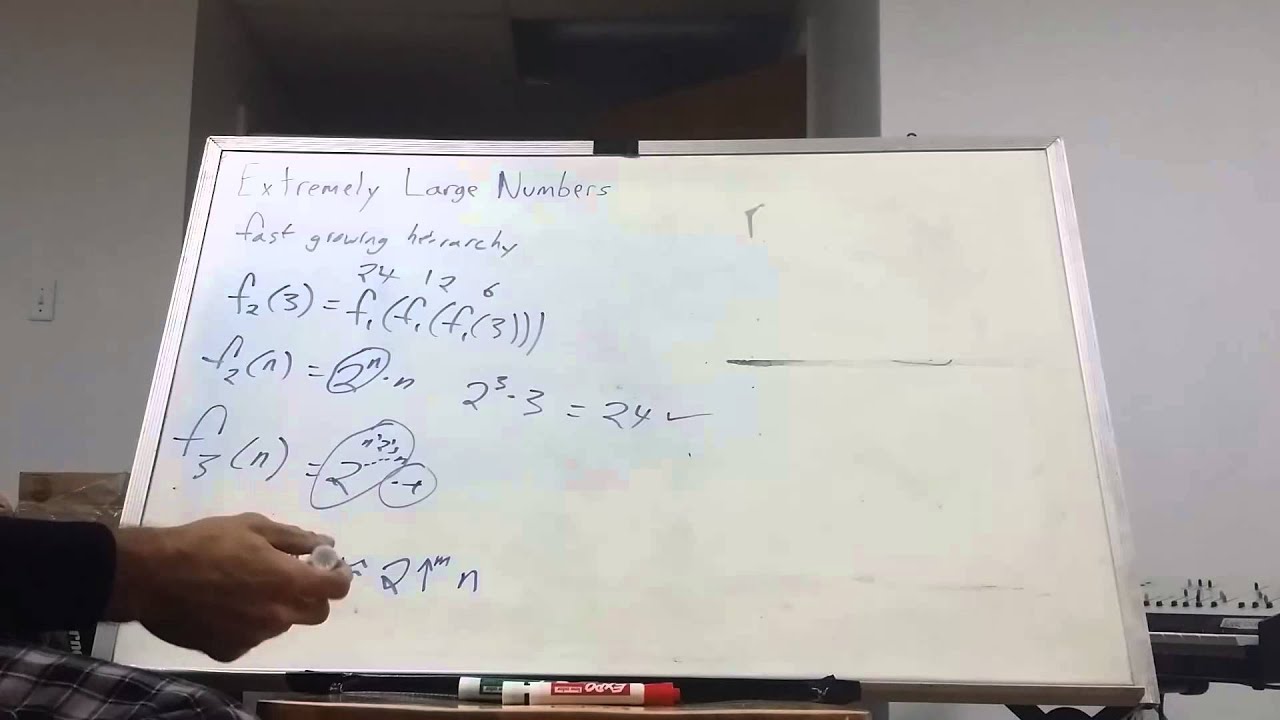 Extremely Large Numbers
fast growing heirarchy
24 12 6
f₂(3) = f₁(f₁(f₁(3)))
f₂(n) = 2ⁿ·n 2³·3 = 24 ✓
f₃(n) = 2
2↑ᵐ n
EXPO